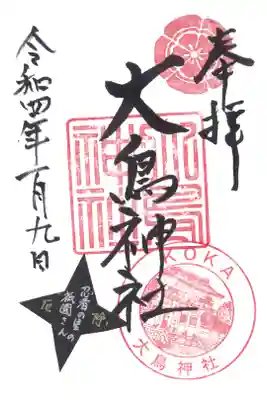 奉拝
大鳥神社
令和四年一月九日
忍者の里の
祇園さん
KOKA
大鳥神社